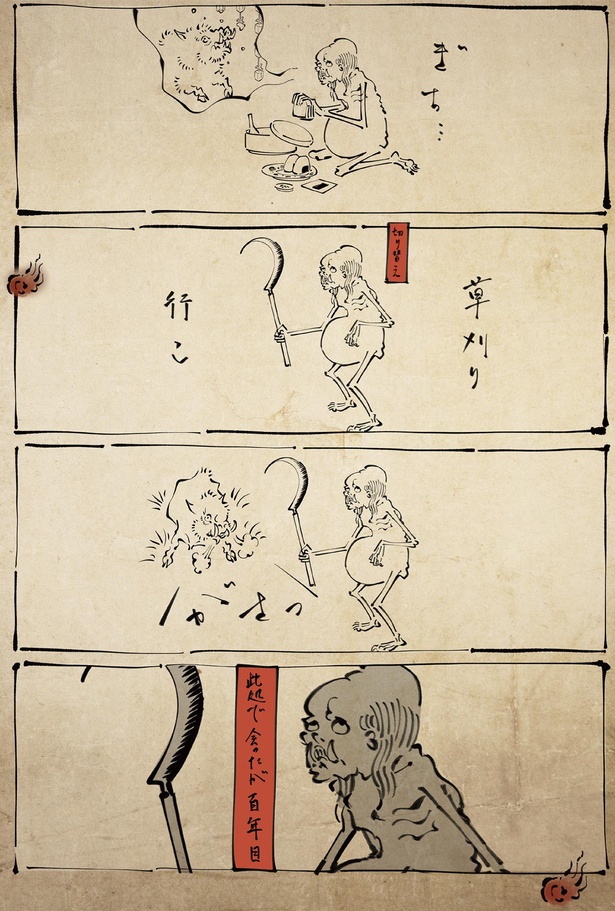 ぎち…
草刈り
切り替え
行こ
がさっ
此処で会ったが百年目